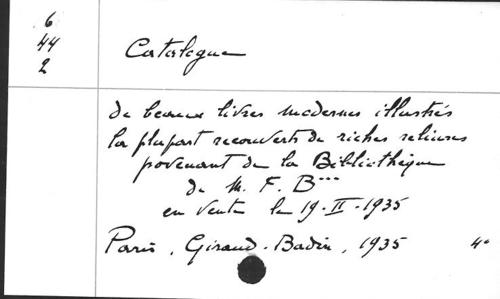 6
44
2
Catalogue
de beaux livres modernes illustrés
la plupart recouverts de riches reliures
povenant de la Bibliothèque
de M. F. B***
en vente le 19-II-1935
Paris, Giraud-Badin, 1935 4°